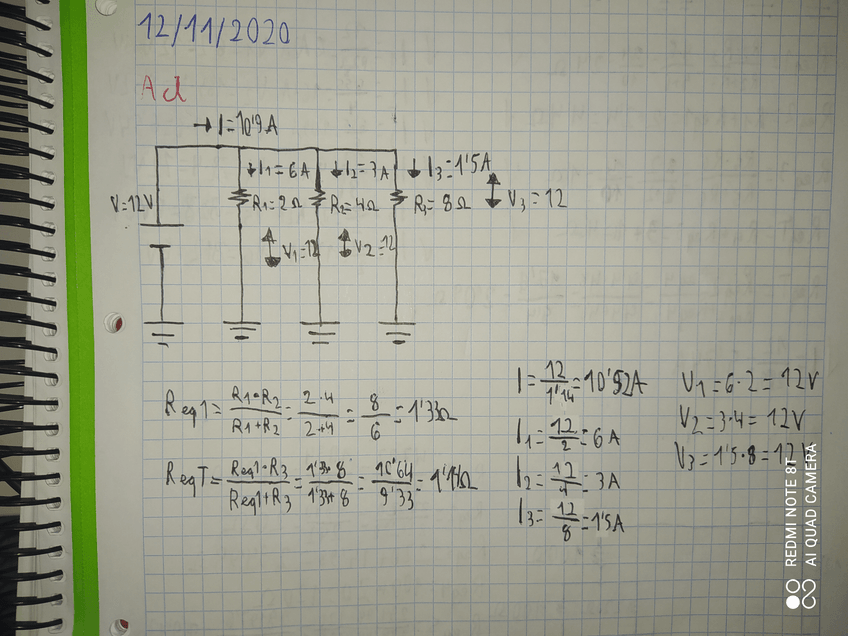 12/11/2020
Ad
→ I=10'9A
↓I1=6A ↓I2=3A ↓ I3=1'5A
V=12V R1=2Ω R2=4Ω R3=8Ω V3=12
V1=12 V2=12
Req1= R1·R2/R1+R2 = 2·4/2+4 = 8/6 = 1'33Ω
ReqT= Req1·R3/Req1+R3 = 1'33·8/1'33+8 = 10'64/9'33 = 1'14Ω
I= 12/1'14 = 10'52A
I1= 12/2 = 6A
I2= 12/4 = 3A
I3= 12/8 = 1'5A
V1=6·2=12V
V2=3·4=12V
V3=1'5·8=12V
REDMI NOTE 8T
AI QUAD CAMERA